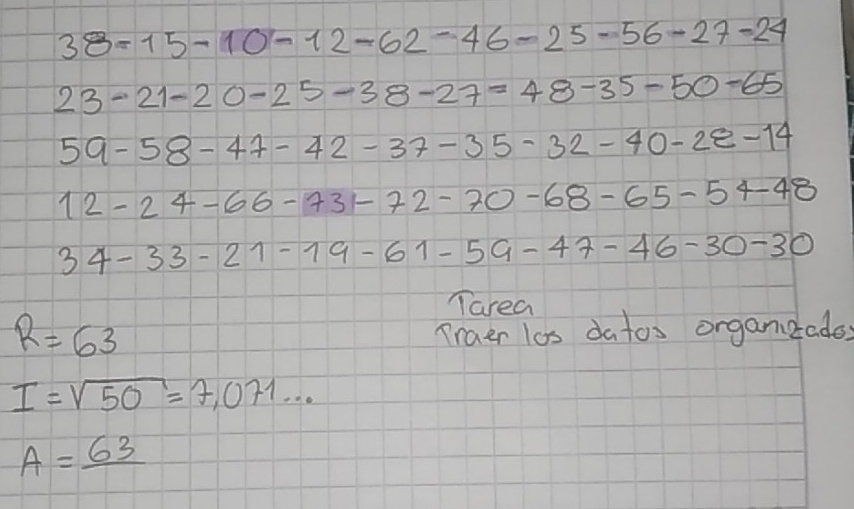 38-15-10-12-62-46-25-56-27-24
23-21-20-25-38-27-48-35-50-65
59-58-47-42-37-35-32-40-28-14
12-24-66-73-72-70-68-65-54-48
34-33-21-19-61-59-47-46-30-30
R=63
Tarea
Traer los datos organizados
I=√50=7,071...
A=63